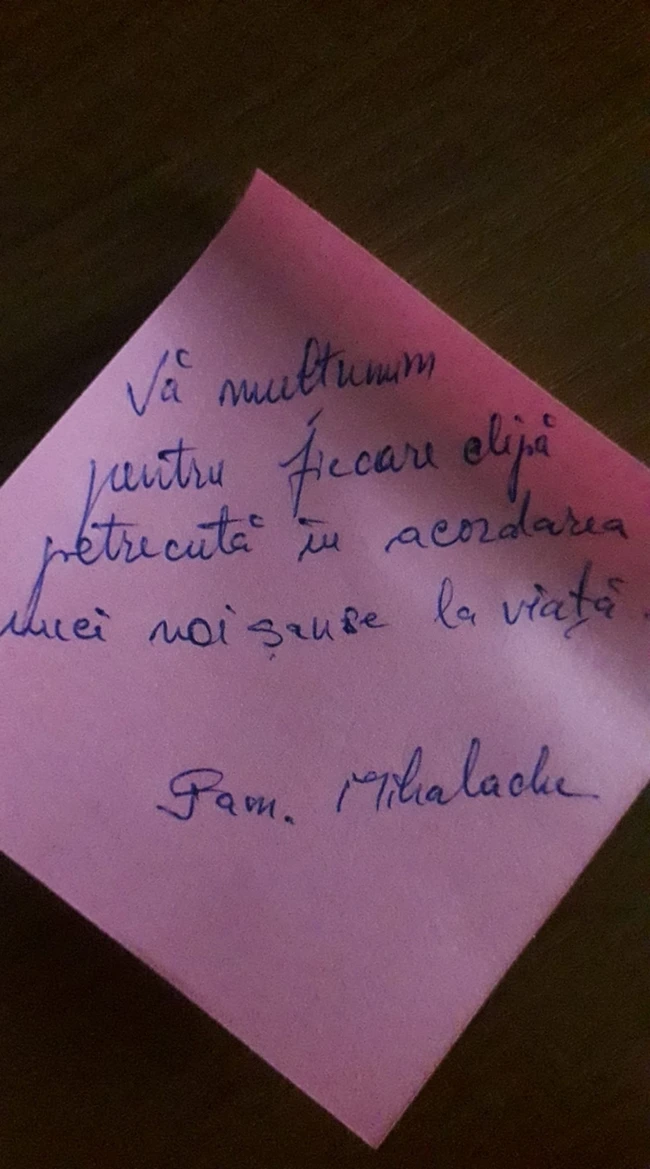 Vă multumim
pentru fiecare clipă
petrecută în acordarea
unei noi șanse la viață.
Fam. Mihalache